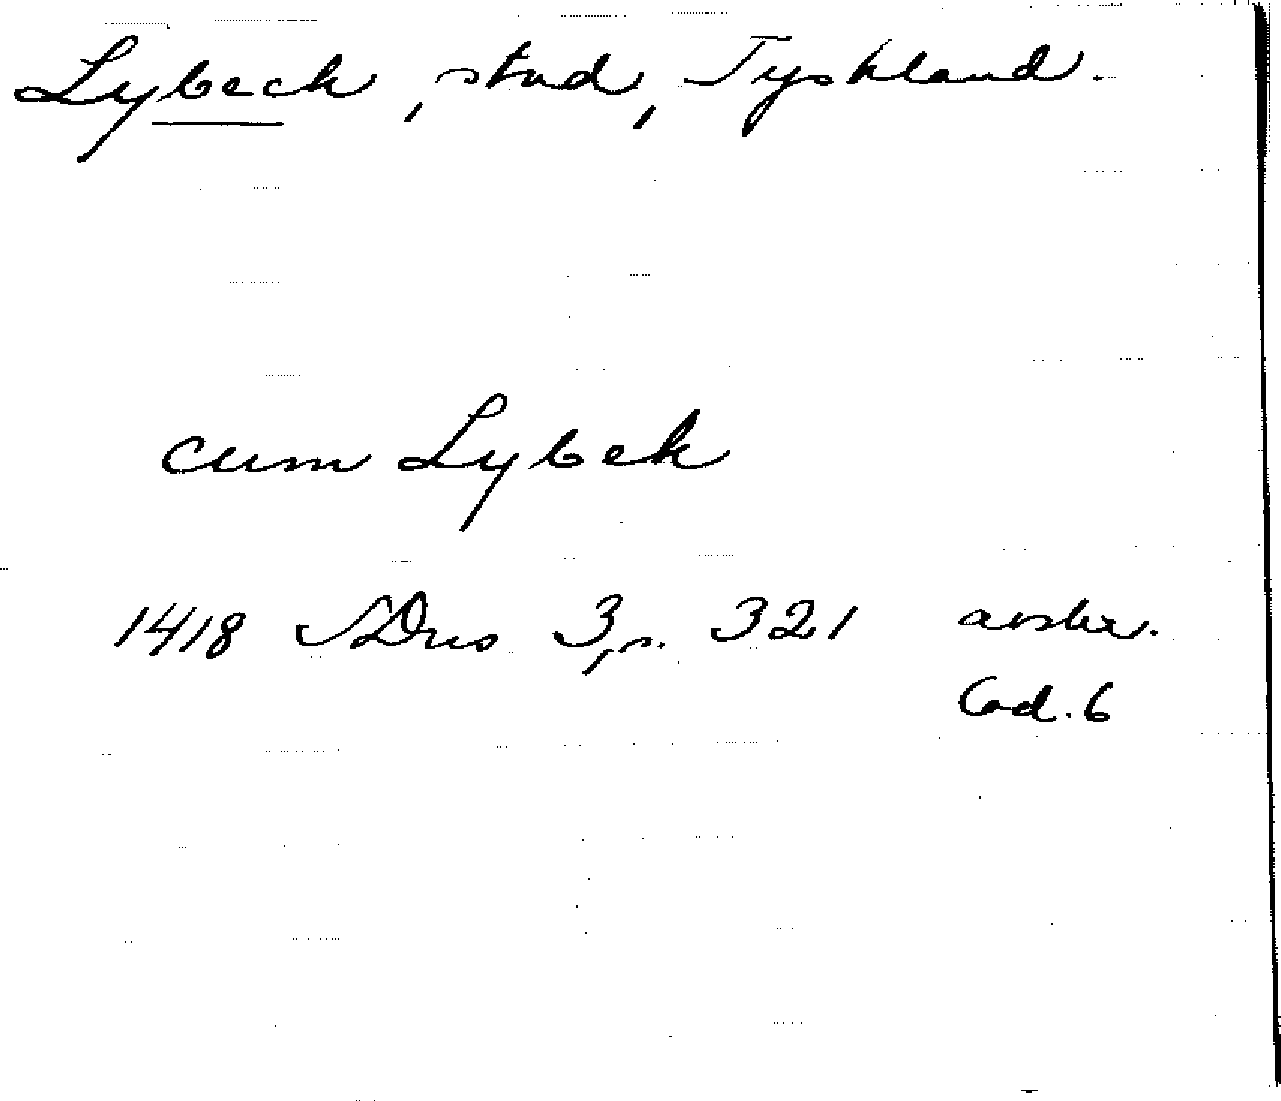 Lybeck, stad, Tyskland.
cum Lybek
1418 SDns 3, s. 321 avskr.
Cod. 6